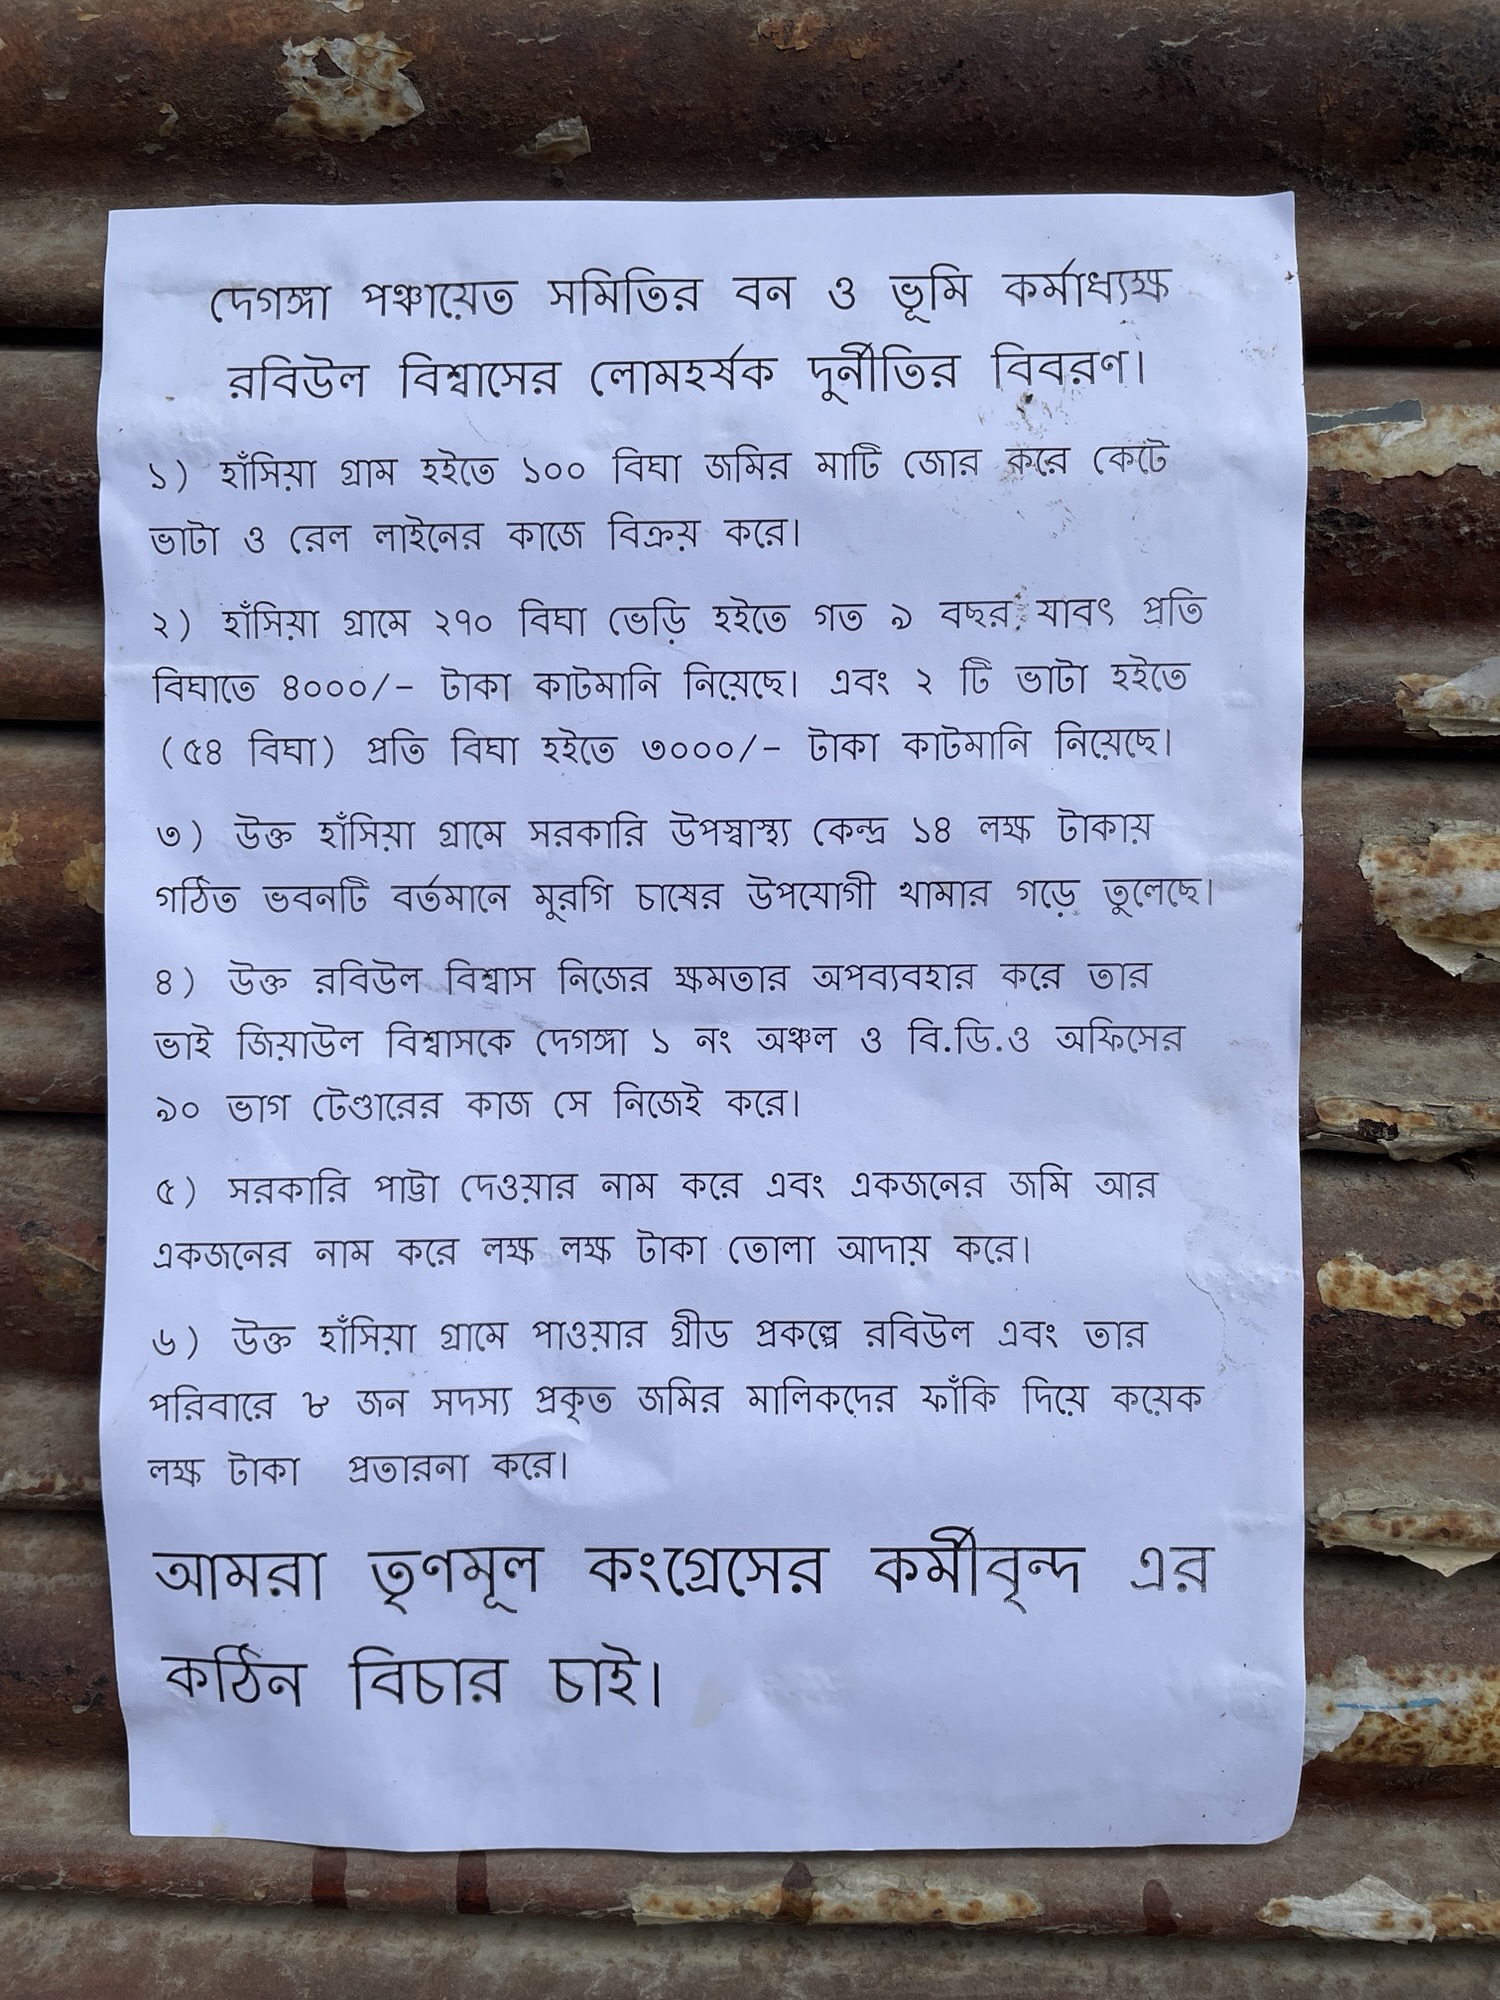 দেগঙ্গা পঞ্চায়েত সমিতির বন ও ভূমি কর্মাধ্যক্ষ
রবিউল বিশ্বাসের লোমহর্ষক দুর্নীতির বিবরণ।
১) হাঁসিয়া গ্রাম হইতে ১০০ বিঘা জমির মাটি জোর করে কেটে
ভাটা ও রেল লাইনের কাজে বিক্রয় করে।
২) হাঁসিয়া গ্রামে ২৭০ বিঘা ভেড়ি হইতে গত ৯ বছর যাবৎ প্রতি
বিঘাতে ৪০০০/- টাকা কাটমানি নিয়েছে। এবং ২ টি ভাটা হইতে
(৫৪ বিঘা) প্রতি বিঘা হইতে ৩০০০/- টাকা কাটমানি নিয়েছে।
৩) উক্ত হাঁসিয়া গ্রামে সরকারি উপস্বাস্থ্য কেন্দ্র ১৪ লক্ষ টাকায়
গঠিত ভবনটি বর্তমানে মুরগি চাষের উপযোগী খামার গড়ে তুলেছে।
৪) উক্ত রবিউল বিশ্বাস নিজের ক্ষমতার অপব্যবহার করে তার
ভাই জিয়াউল বিশ্বাসকে দেগঙ্গা ১ নং অঞ্চল ও বি.ডি.ও অফিসের
৯০ ভাগ টেণ্ডারের কাজ সে নিজেই করে।
৫) সরকারি পাট্টা দেওয়ার নাম করে এবং একজনের জমি আর
একজনের নাম করে লক্ষ লক্ষ টাকা তোলা আদায় করে।
৬) উক্ত হাঁসিয়া গ্রামে পাওয়ার গ্রীড প্রকল্পে রবিউল এবং তার
পরিবারে ৮ জন সদস্য প্রকৃত জমির মালিকদের ফাঁকি দিয়ে কয়েক
লক্ষ টাকা প্রতারনা করে।
আমরা তৃণমূল কংগ্রেসের কর্মীবৃন্দ এর
কঠিন বিচার চাই।